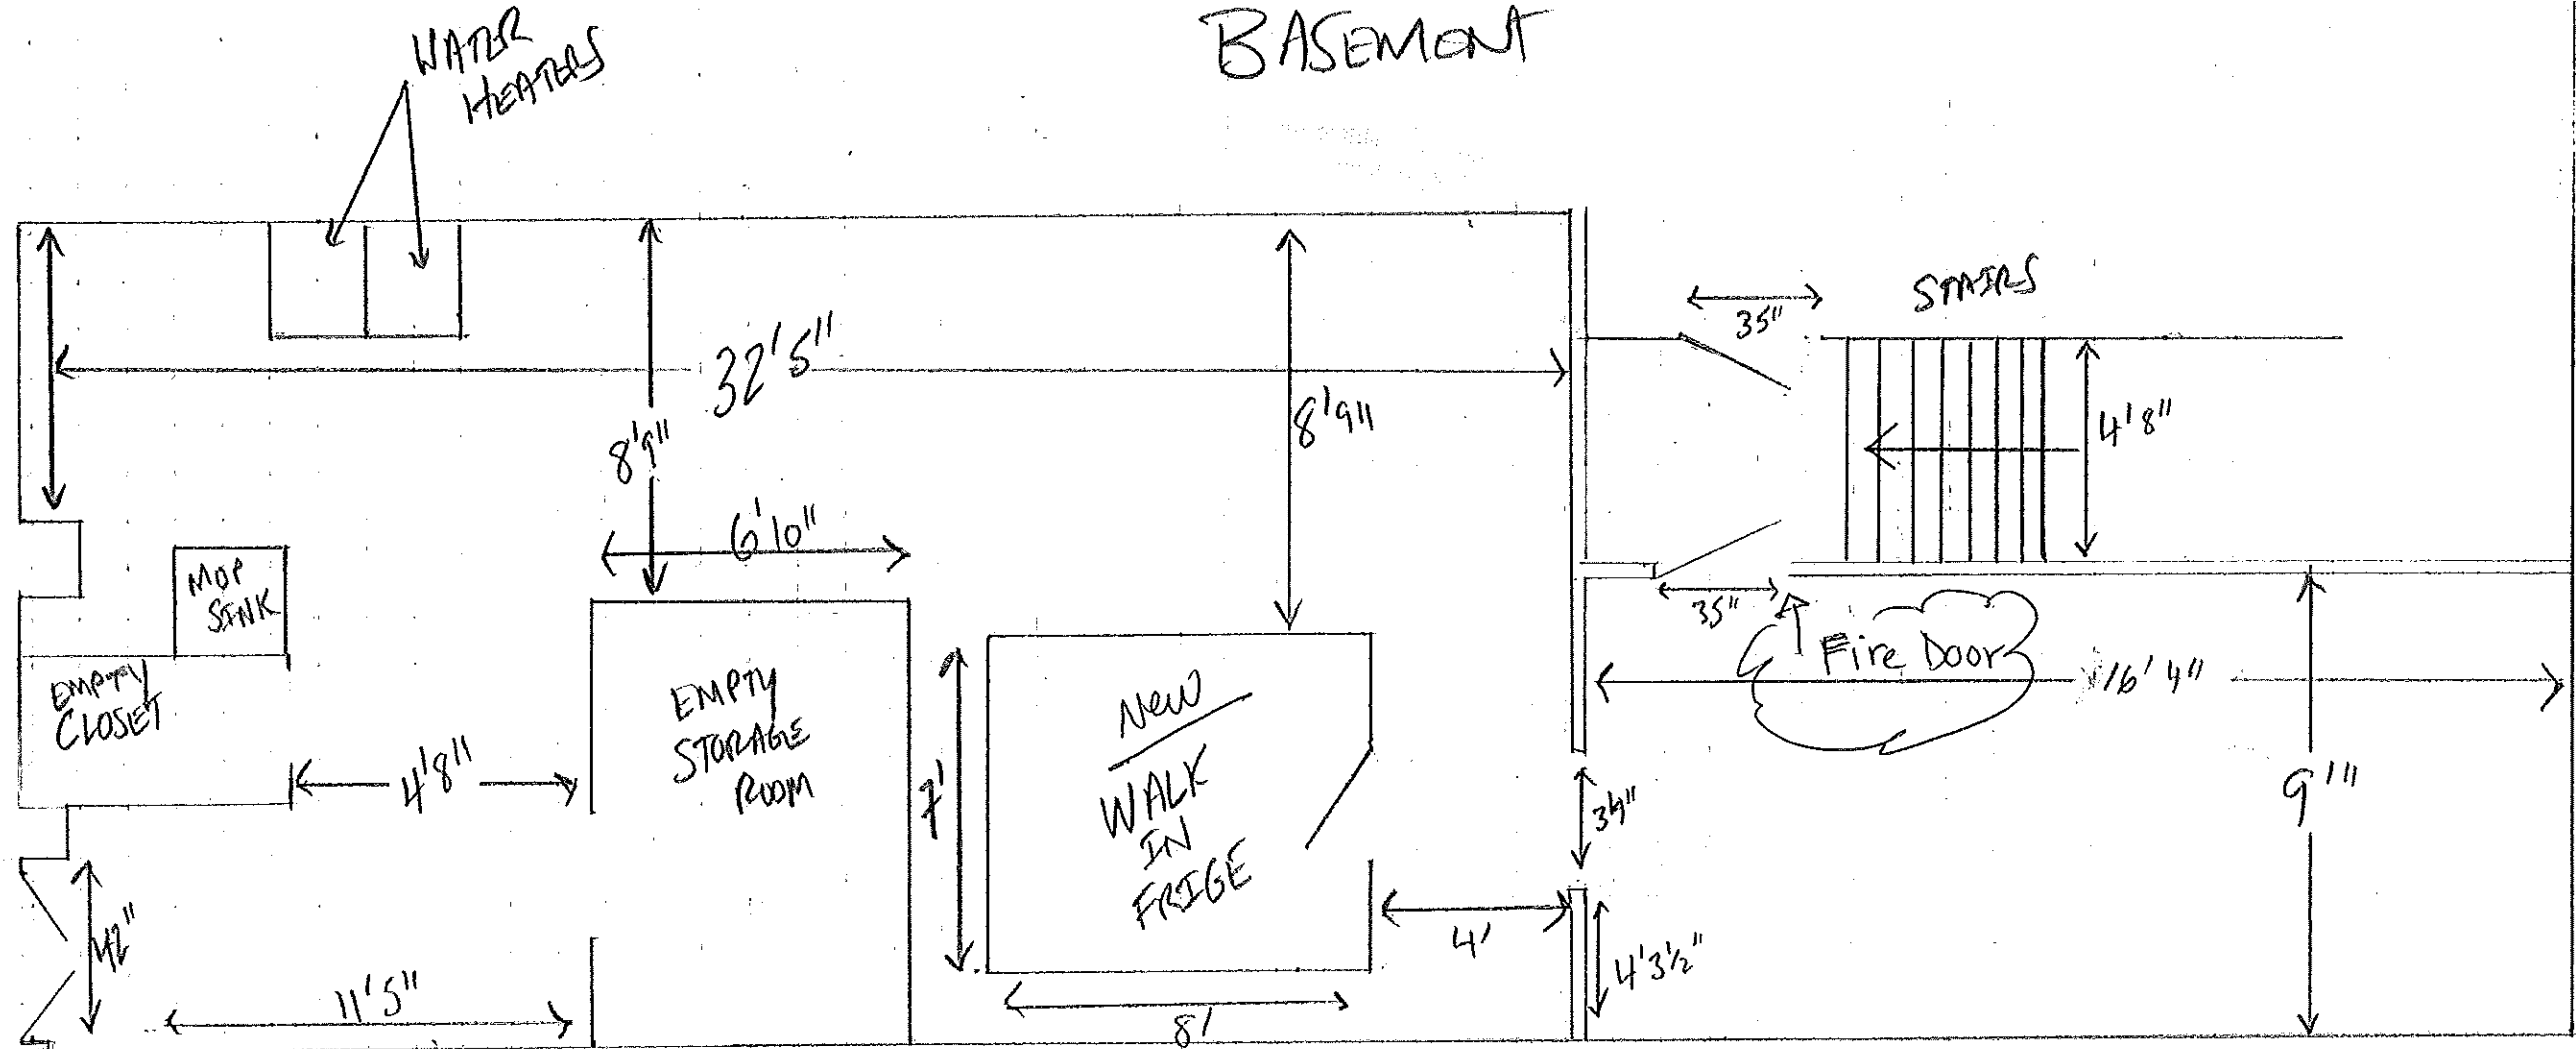 BASEMENT
WATER
HEATERS
32'5"
8'9"
8'9"
6'10"
STAIRS
35"
4'8"
MOP
SINK
35"
Fire Door
16'4"
EMPTY
CLOSET
4'8"
EMPTY
STORAGE
ROOM
7'
NEW
WALK
IN
FRIGE
34"
9'1"
42"
11'5"
8'
4'
4'3½"